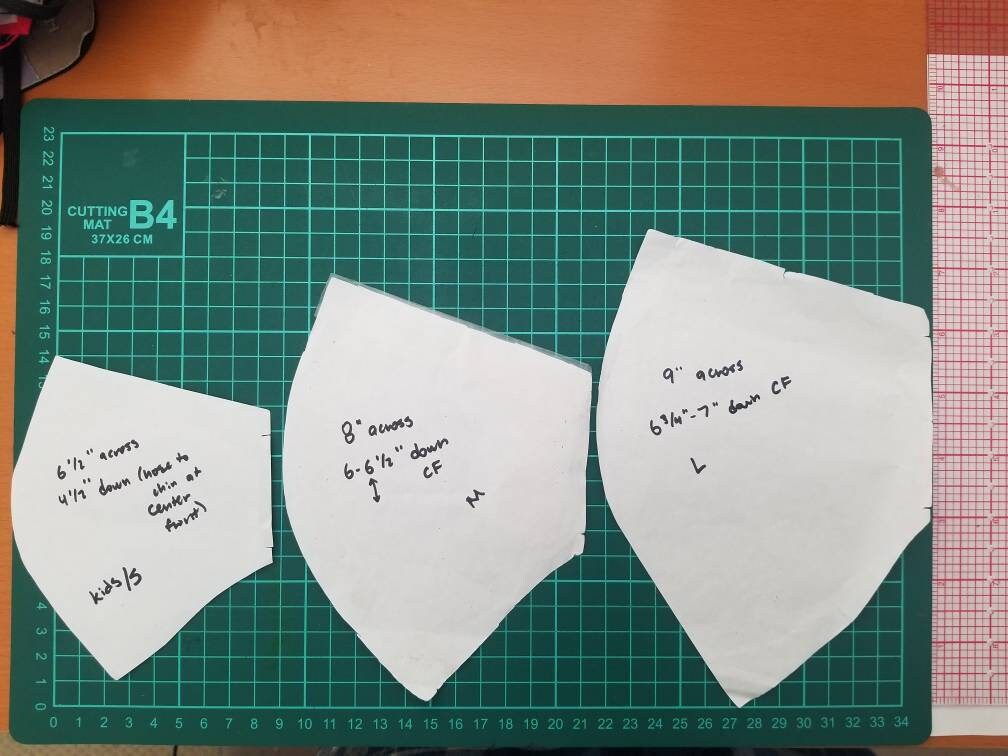 CUTTING
MAT
B4
37X26 CM
23
22
21
20
19
18
17
16
15
14
4
3
2
1
0
0 1 2 3 4 5 6 7 8 9 10 11 12 13 14 15 16 17 18 19 20 21 22 23 24 25 26 27 28 29 30 31 32 33 34
6 1/2" across
4 1/2" down (nose to
chin at
center
front)
kids/S
8" across
6-6 1/2" down
CF
M
9" across
6 3/4"-7" down CF
L